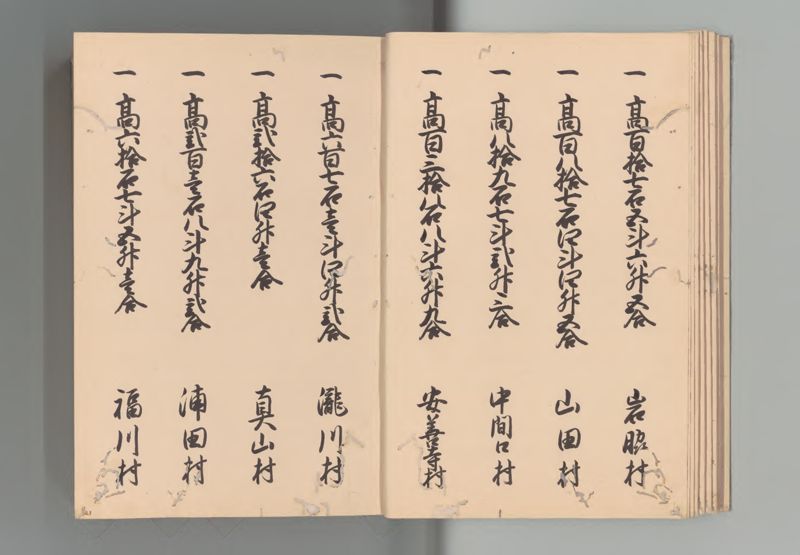 一 高百拾七石五斗六升五合 岩脇村
一 高百八拾七石四斗四升五合 山田村
一 高八拾九石七斗弐升三合 中間口村
一 高百三拾八石八斗六升九合 安善寺村
一 高六百七石壱斗四升弐合 瀧川村
一 高弐拾六石四升壱合 真山村
一 高弐百壱石八斗九升弐合 浦田村
一 高六拾石七斗五升壱合 福川村